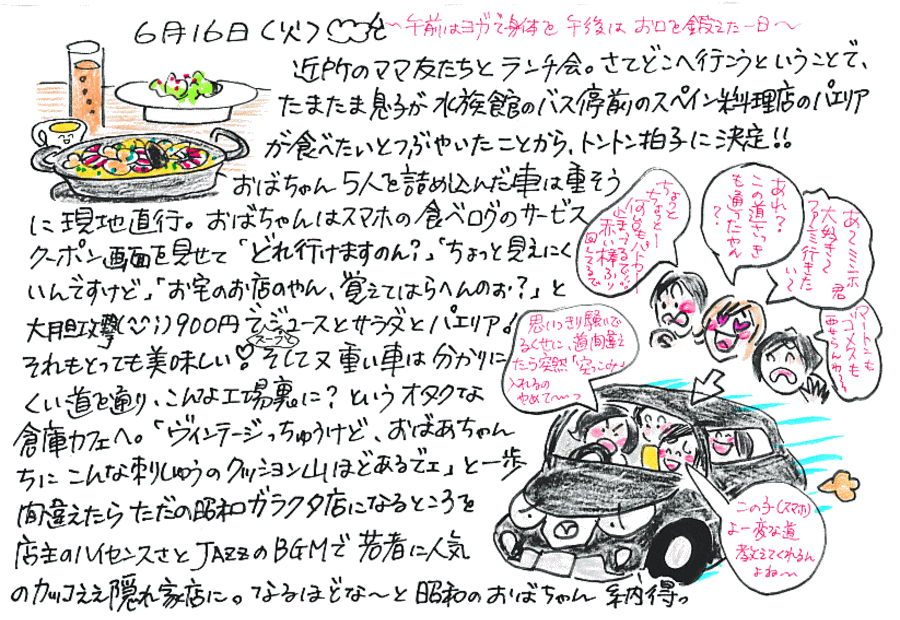 6月16日(火)
~午前はヨガで身体を 午後は お口を鍛えた一日~
近所のママ友たちと ランチ会。さてどこへ行こうということで、
たまたま息子が 水族館のバス停前のスペイン料理店のパエリア
が食べたいとつぶやいたことから、トントン拍子に決定!!
おばちゃん 5人を詰め込んだ車は重そう
に現地直行。おばちゃんはスマホの食べログのサービス
クーポン画面を見せて「どれ行けますのん?」「ちょっと見えにく
いんですけど」「お宅のお店のやん、覚えてはらへんのぉ?」と
大胆攻撃(^^;)900円でジュースとサラダとパエリア!
スープも
それもとっても美味しい♡ そして又 重い車は分かりに
くい道を通り、こんな工場裏に?というオタクな
倉庫カフェへ。「ヴィンテージっちゅうけど、おばあちゃん
ちに こんな刺しゅうのクッション山ほどあるでェ」と一歩
間違えたら ただの昭和ガラクタ店になるところを
店主のハイセンスさと JAZZのBGMで 若者に人気
のカッコええ隠れ家店に。なるほどな〜と 昭和のおばちゃん 納得っ
ちょっと
ちょっとー
何台もパトカー
止まってるでぇ
赤い棒ふり
回してるで
あれ?
この道さっき
も通ったやん
?
あ〜ミンホ君
大好き〜
ファンミ行きた
い〜
マートンも
ゴメスも
要らんわぁ
思いっきり騒いで
るくせに、道間違え
たら突然「突っこみ」
入れるの
やめて〜っ
この子(スマホ)
よー変な道
教えてくれるん
よね〜